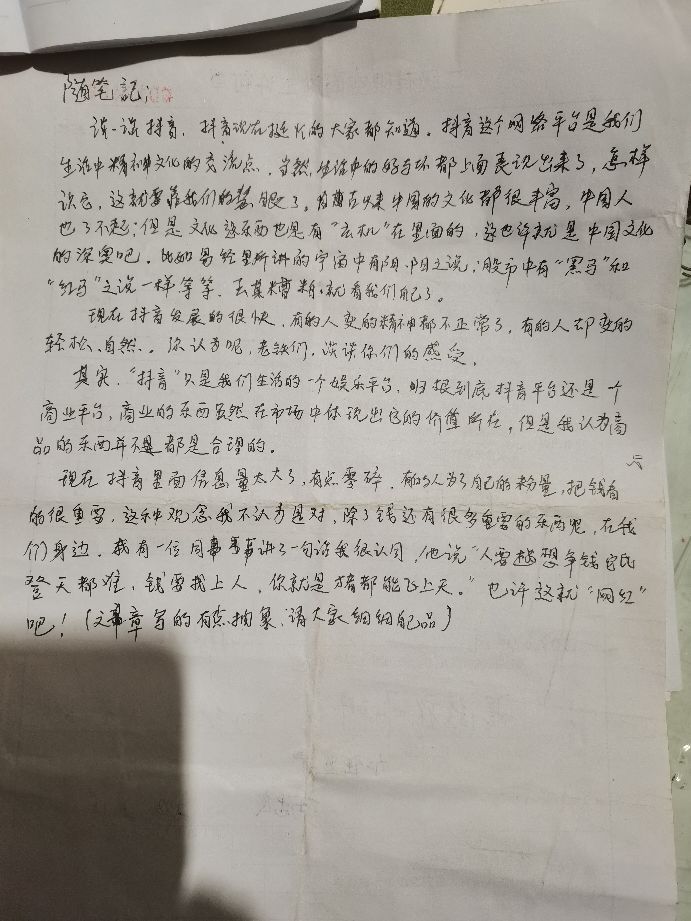 随笔记:
谈一谈抖音，抖音现在挺忙的大家都知道。抖音这个网络平台是我们
生活中精神文化的交流点。当然，生活中的好与坏都上面表现出来了，怎样
识它，这就要靠我们的慧眼了。自古以来中国的文化都很丰富，中国人
也了不起；但是文化这东西也是有“玄机”在里面的，这也许就是中国文化
的深奥吧。比如易经里所讲的宇宙中有阴、阳之说；股市中有“黑马”和
“红马”之说一样等等，去其糟粕就看我们自己了。
现在抖音发展的很快，有的人变的精神都不正常了，有的人却变的
轻松、自然。你认为呢，老铁们，谈谈你们的感受。
其实，“抖音”只是我们生活的一个娱乐平台，归根到底抖音平台还是一个
商业平台，商业的东西虽然在市场中体现出它的价值所在，但是我认为商
品的东西并不是都是合理的。
现在抖音里面信息量太大了，有点零碎，有的人为了自己的粉量，把钱看
的很重要，这种观念我不认为是对，除了钱还有很多重要的东西呢，在我
们身边。我有一位同事讲了一句话我很认同，他说“人要想争钱它比
登天都难，钱要找上人，你就是猪都能飞上天。”也许这就“网红”
吧！（文章写的有点抽象，请大家细细自己品）